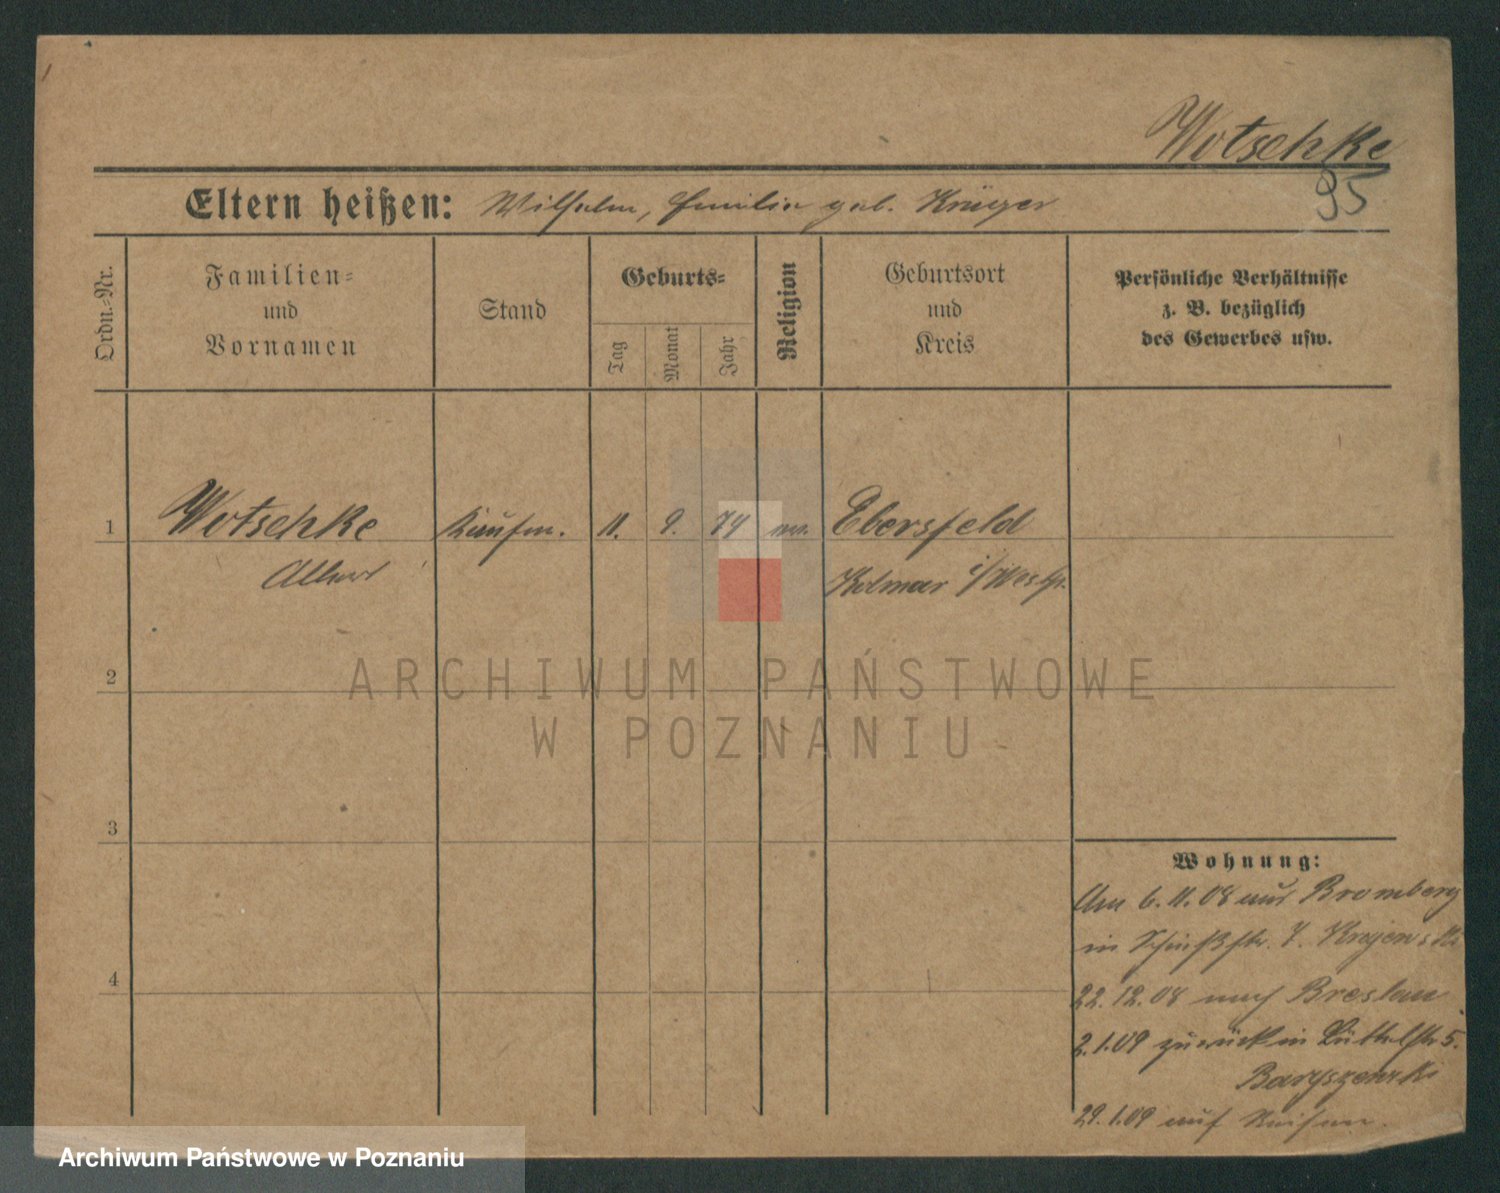 Wotschke
95
Eltern heißen: Wilhelm, Emilie geb. Krüger
Ordn.-Nr.
Familien-
und
Vornamen
Stand
Geburts-
Tag
Monat
Jahr
Religion
Geburtsort
und
Kreis
Persönliche Verhältnisse
z. B. bezüglich
des Gewerbes usw.
1 Wotschke Kaufm. 11. 9. 74 ev. Ebersfeld
Albert Kolmar i/Westp.
2
ARCHIWUM PAŃSTWOWE
W POZNANIU
3
Wohnung:
Am 6.11.08 aus Bromberg
in Schießstr. 7. Krajewski
4
22.12.08 nach Breslau
2.1.09 zurück in Büttelstr 5.
29.1.09 auf Reisen.
Archiwum Państwowe w Poznaniu